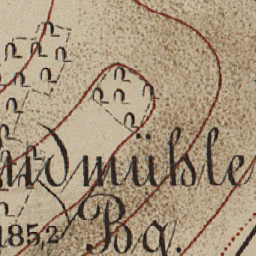 ndmühle
Bg.
185,2